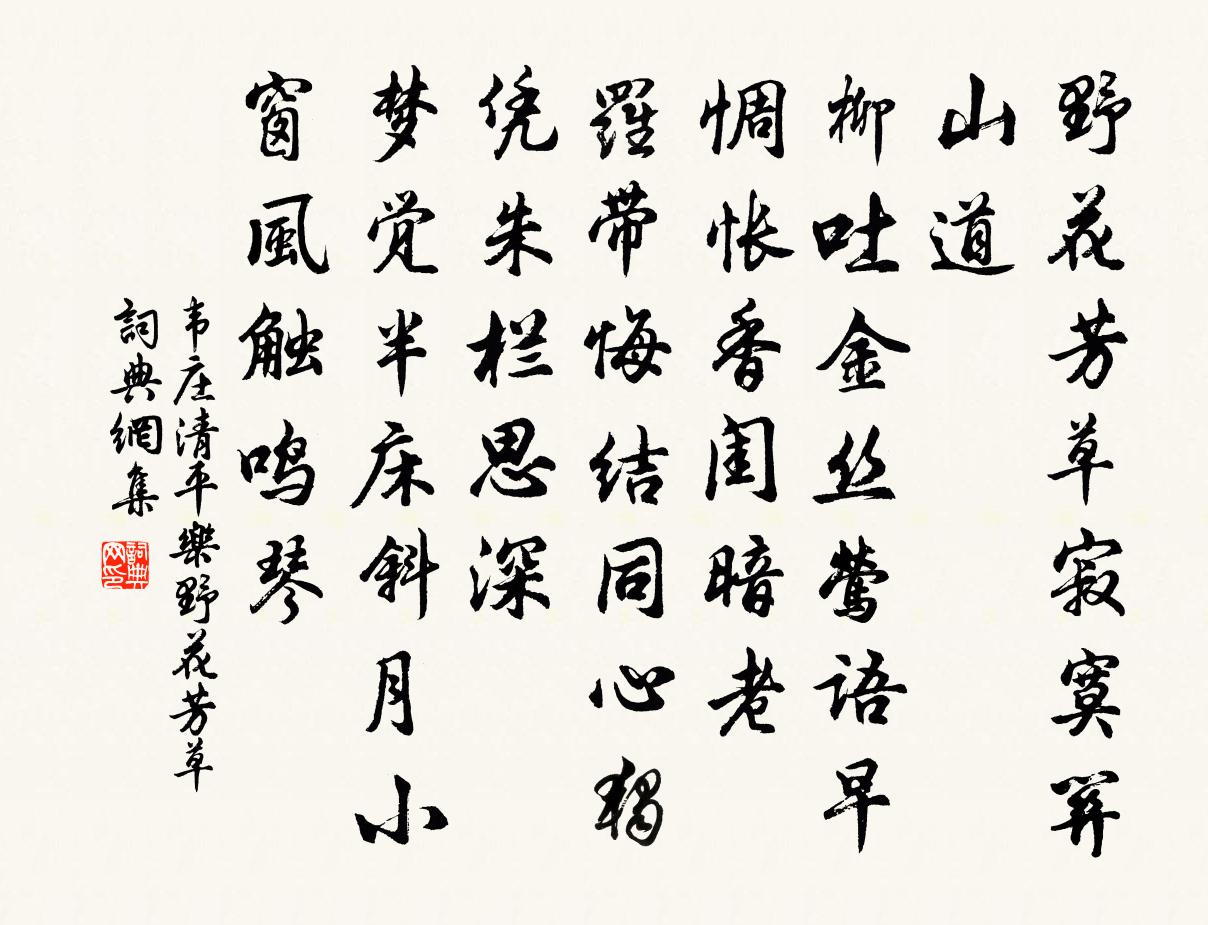 野花芳草寂寞関
山道
柳吐金丝莺语早
惆怅香闺暗老
羅带悔结同心独
凭朱栏思深
梦觉半床斜月小
窗風触鸣琴
韦庄清平樂野花芳草
詞典網集
詞典网印